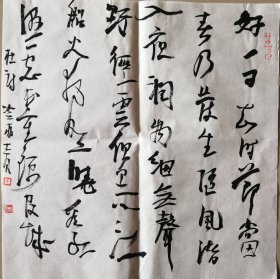 好雨知時節當
春乃發生隨風潛
入夜潤物細無聲
野徑雲俱黑江
船火獨明曉看紅
濕處花重錦官城
杜詩